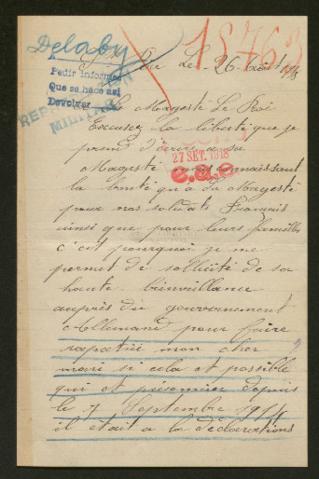 Delaby
18763
Le 26 août 1918
Pedir informe
Que se hace así
Devolver
27 SET. 1918
Sa Magesté Le Roi
Excusez la liberté que je
prend d'écrire a sa
Magesté connaissant
la bonté qu'a Sa Magesté
pour nos soldats Français
ainsi que pour leurs familles
c'est pourquoi je me
permet de sollicité de sa
haute bienveillance
auprès du gouvernement
Allemand pour faire
rapatrié mon cher
mari si cela est possible
qui est prisonnier depuis
le 7 Septembre 1914
il était a la déclarations